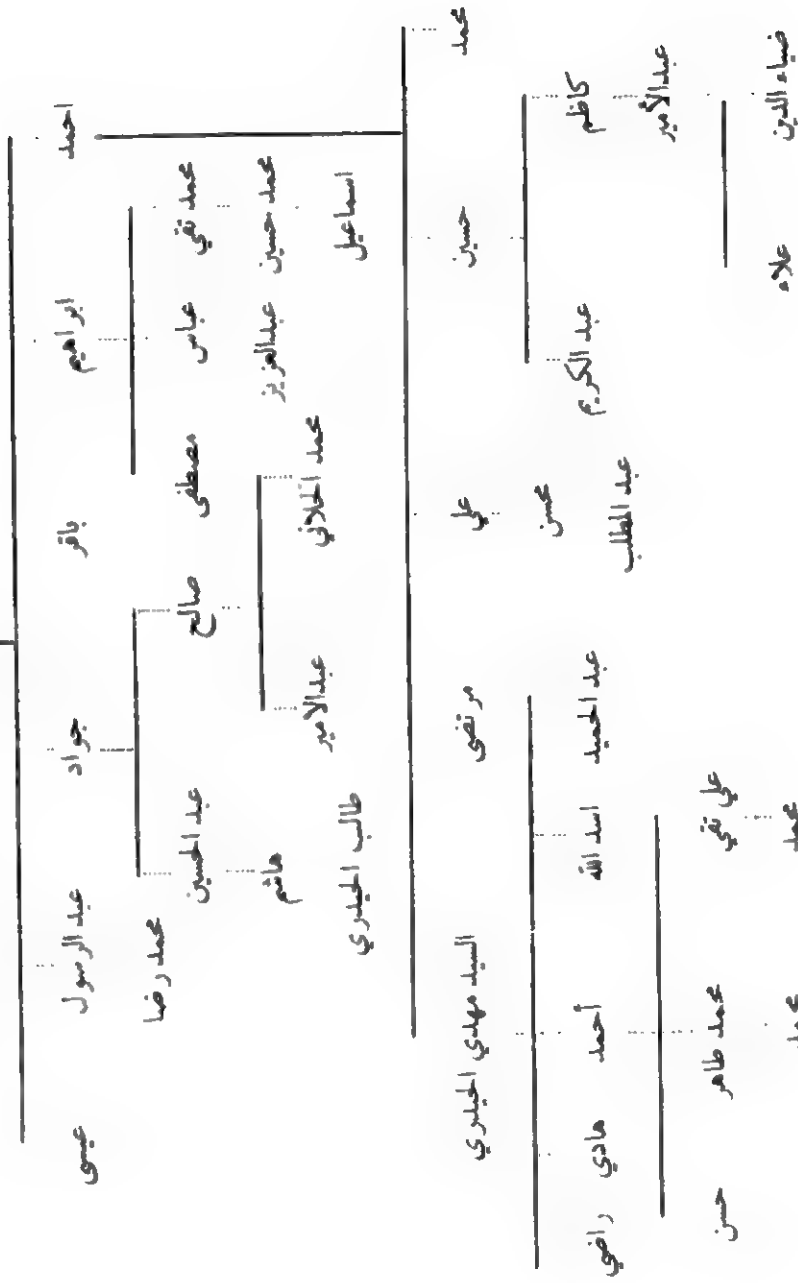 احمد
ابراهيم
باقر
جواد
عبد الرسول
عيسى
محمد تقي
عباس
مصطفى
صالح
عبد الحسين
محمد رضا
محمد حسين
عبدالعزيز
محمد الخلاني
عبدالأمير
هاشم
اسماعيل
طالب الحيدري
محمد
حسين
علي
مرتضى
السيد مهدي الحيدري
كاظم
عبد الكريم
محسن
عبد الحميد
اسد الله
أحمد
هادي
راضي
عبدالأمير
عبد المطلب
علي نقي
محمد طاهر
حسن
ضياء الدين
علاء
محمد
محمد